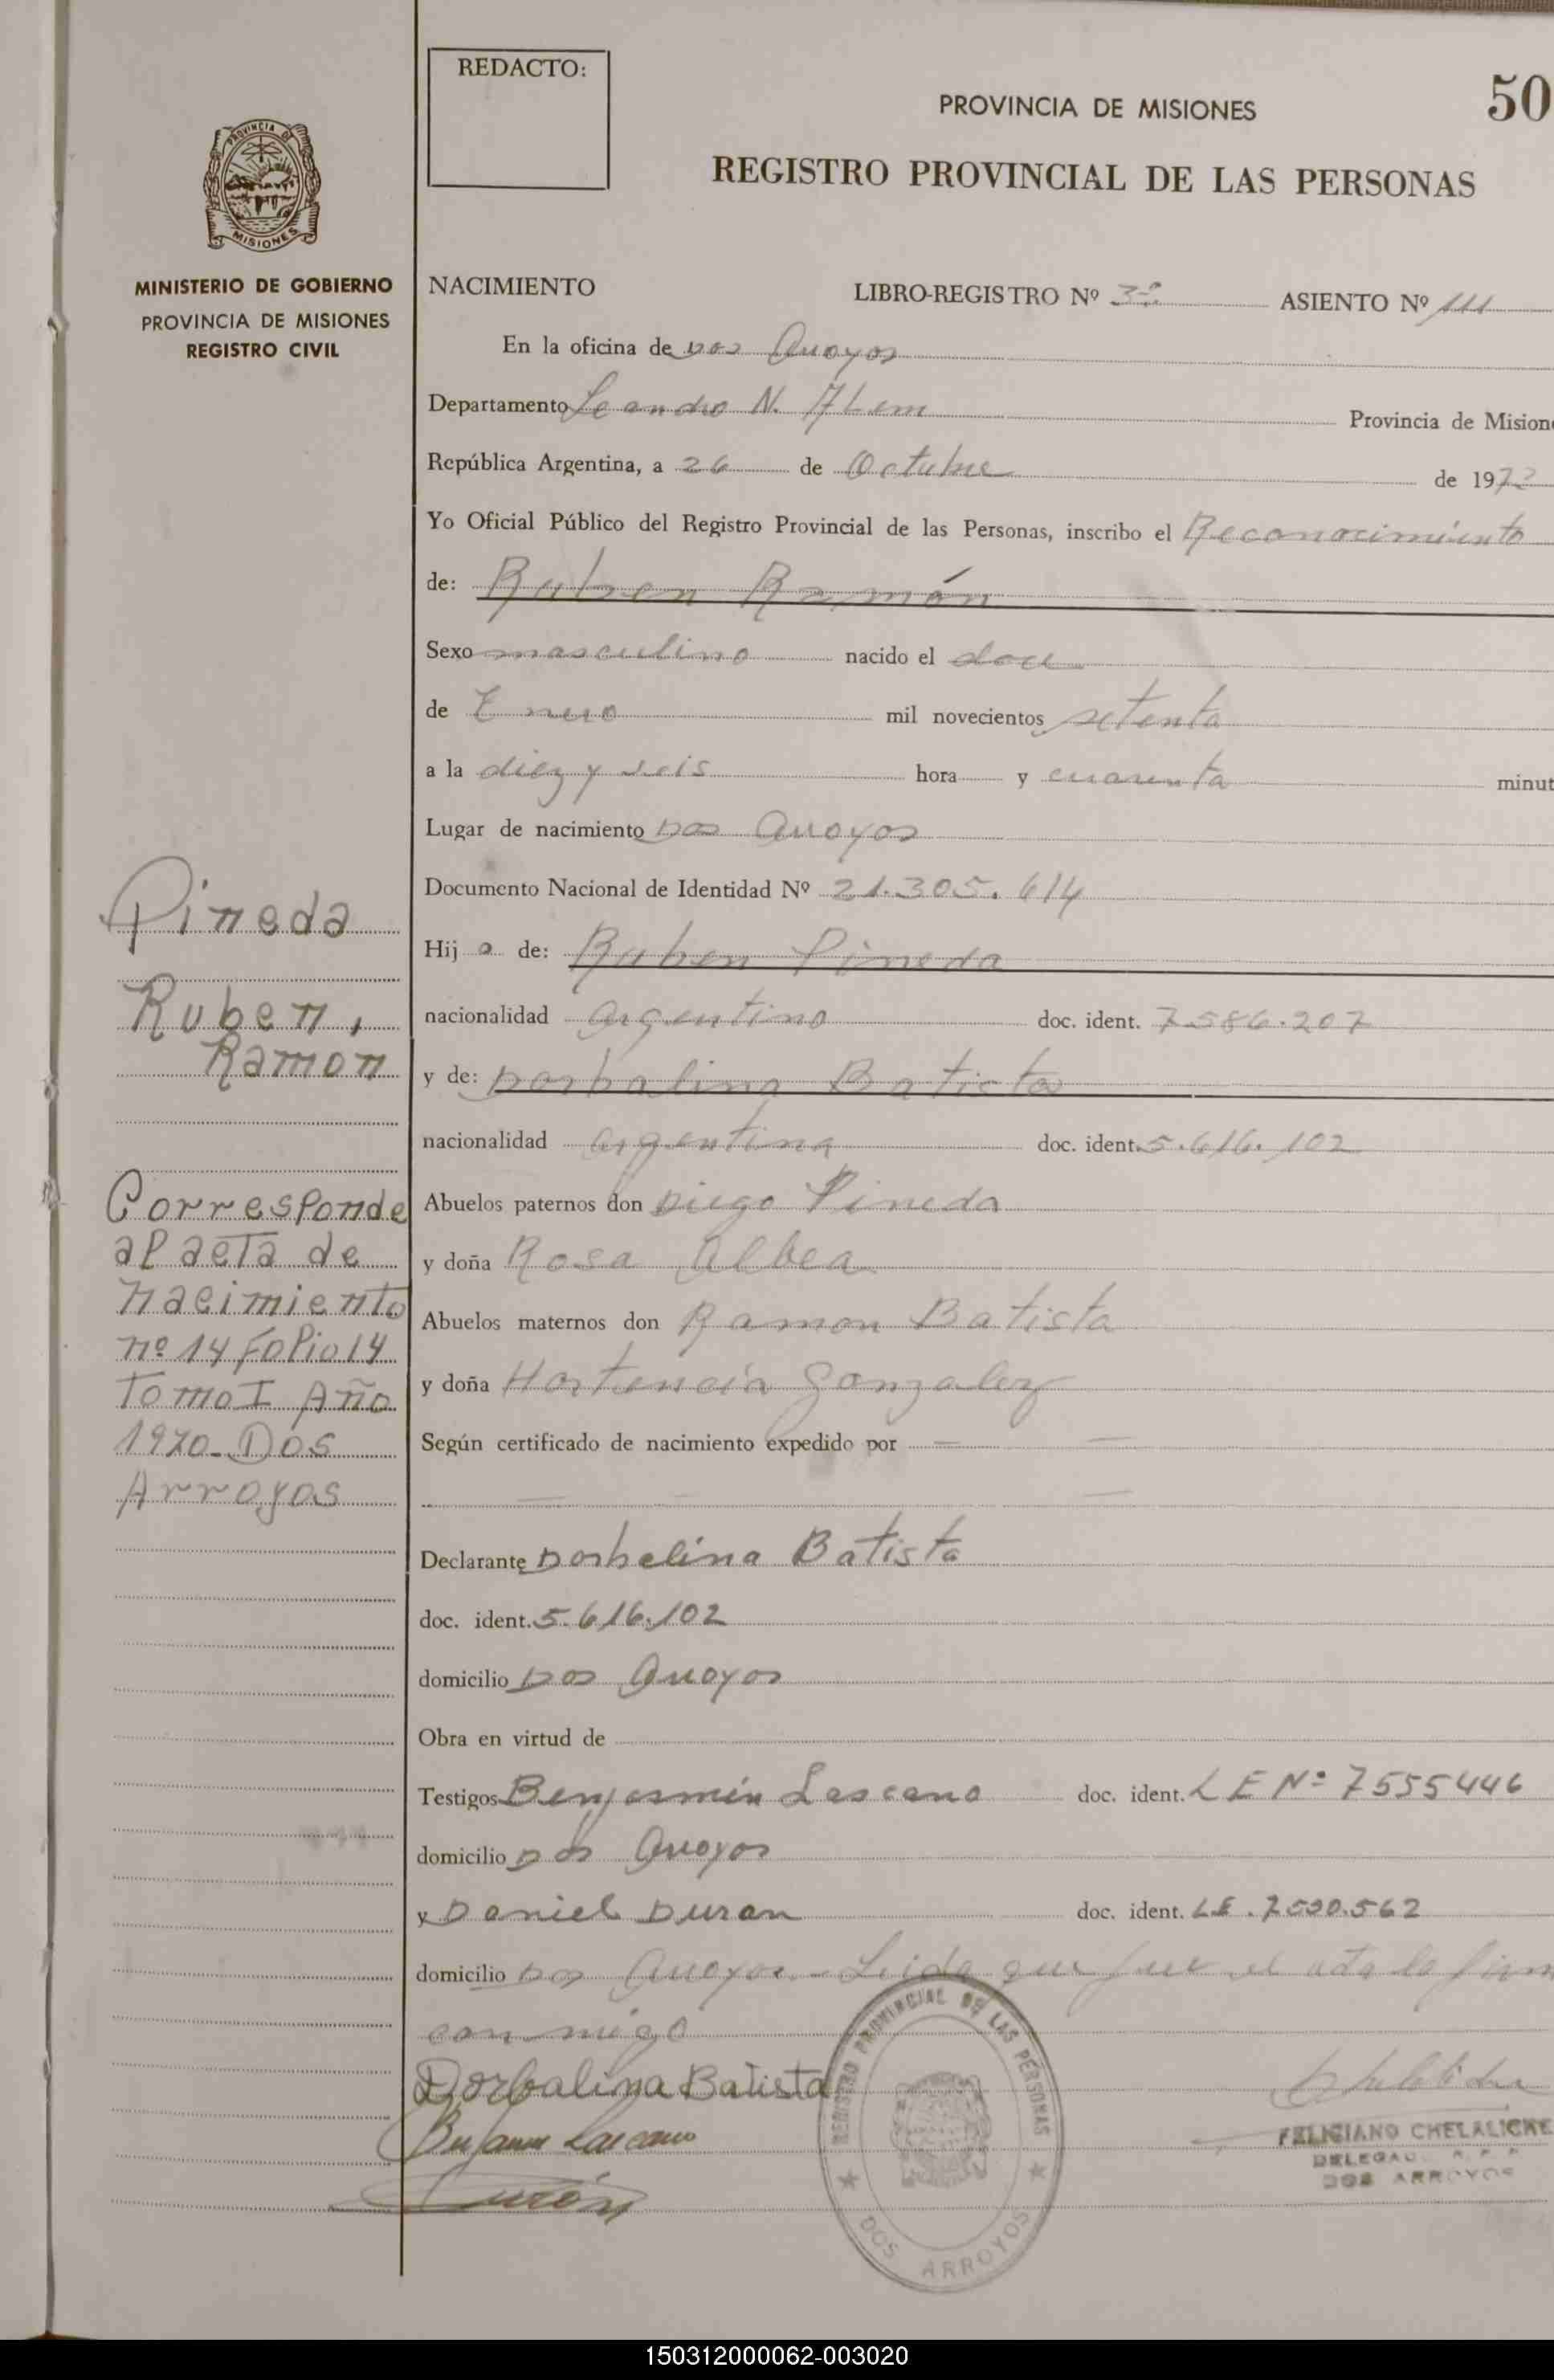 REDACTO:
PROVINCIA DE MISIONES
50
REGISTRO PROVINCIAL DE LAS PERSONAS
PROVINCIA DE
MISIONES
MINISTERIO DE GOBIERNO
PROVINCIA DE MISIONES
REGISTRO CIVIL
NACIMIENTO LIBRO-REGISTRO Nº 3º ASIENTO Nº 111
En la oficina de Dos Arroyos
Departamento Leandro N. Alem Provincia de Mision
República Argentina, a 26 de Octubre de 1973
Yo Oficial Público del Registro Provincial de las Personas, inscribo el Reconocimiento
de: Ruben Ramón
Sexo masculino nacido el doce
de Enero mil novecientos setenta
a la diez y seis hora y cuarenta minut
Lugar de nacimiento Dos Arroyos
Documento Nacional de Identidad Nº 21.305.614
Hij o de: Ruben Pineda
nacionalidad argentino doc. ident. 7586.207
y de: Dorbalina Batista
nacionalidad argentina doc. ident. 5.616.102
Abuelos paternos don Diego Pineda
y doña Rosa Albea
Abuelos maternos don Ramon Batista
y doña Hortencia Gonzalez
Según certificado de nacimiento expedido por — —
— — —
Declarante Dorbelina Batista
doc. ident. 5.616.102
domicilio Dos Arroyos
Obra en virtud de
Testigos Benjamín Lascano doc. ident. LE Nº 7555446
domicilio Dos Arroyos
y Daniel Duran doc. ident. LE. 7.590.562
domicilio Dos Arroyos.- Leida que fue el acta la firm
con migo
Dorbalina Batista
Benjamin Lascano
Durón
REGISTRO PROVINCIAL DE LAS PERSONAS
DOS ARROYOS
FELICIANO CHELALICHE
DELEGADO R. P. P.
DOS ARROYOS
Pineda
Ruben,
Ramon
Corresponde
al acta de
nacimiento
nº 14 Folio 14
Tomo I Año
1970- Dos
Arroyos
150312000062-003020